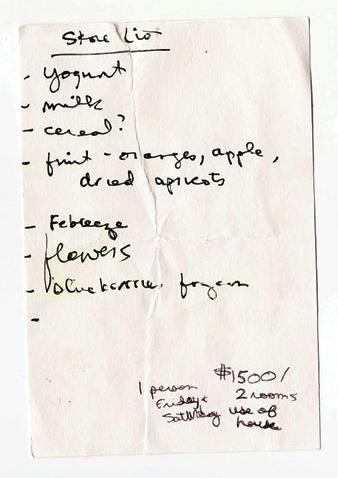 Store List
- yogurt
- milk
- cereal?
- fruit - oranges, apple,
dried apricots
- Febreeze
- flowers
- blueberries frozen
-
$1500/
1 person 2 rooms
Friday + use of
Saturday house